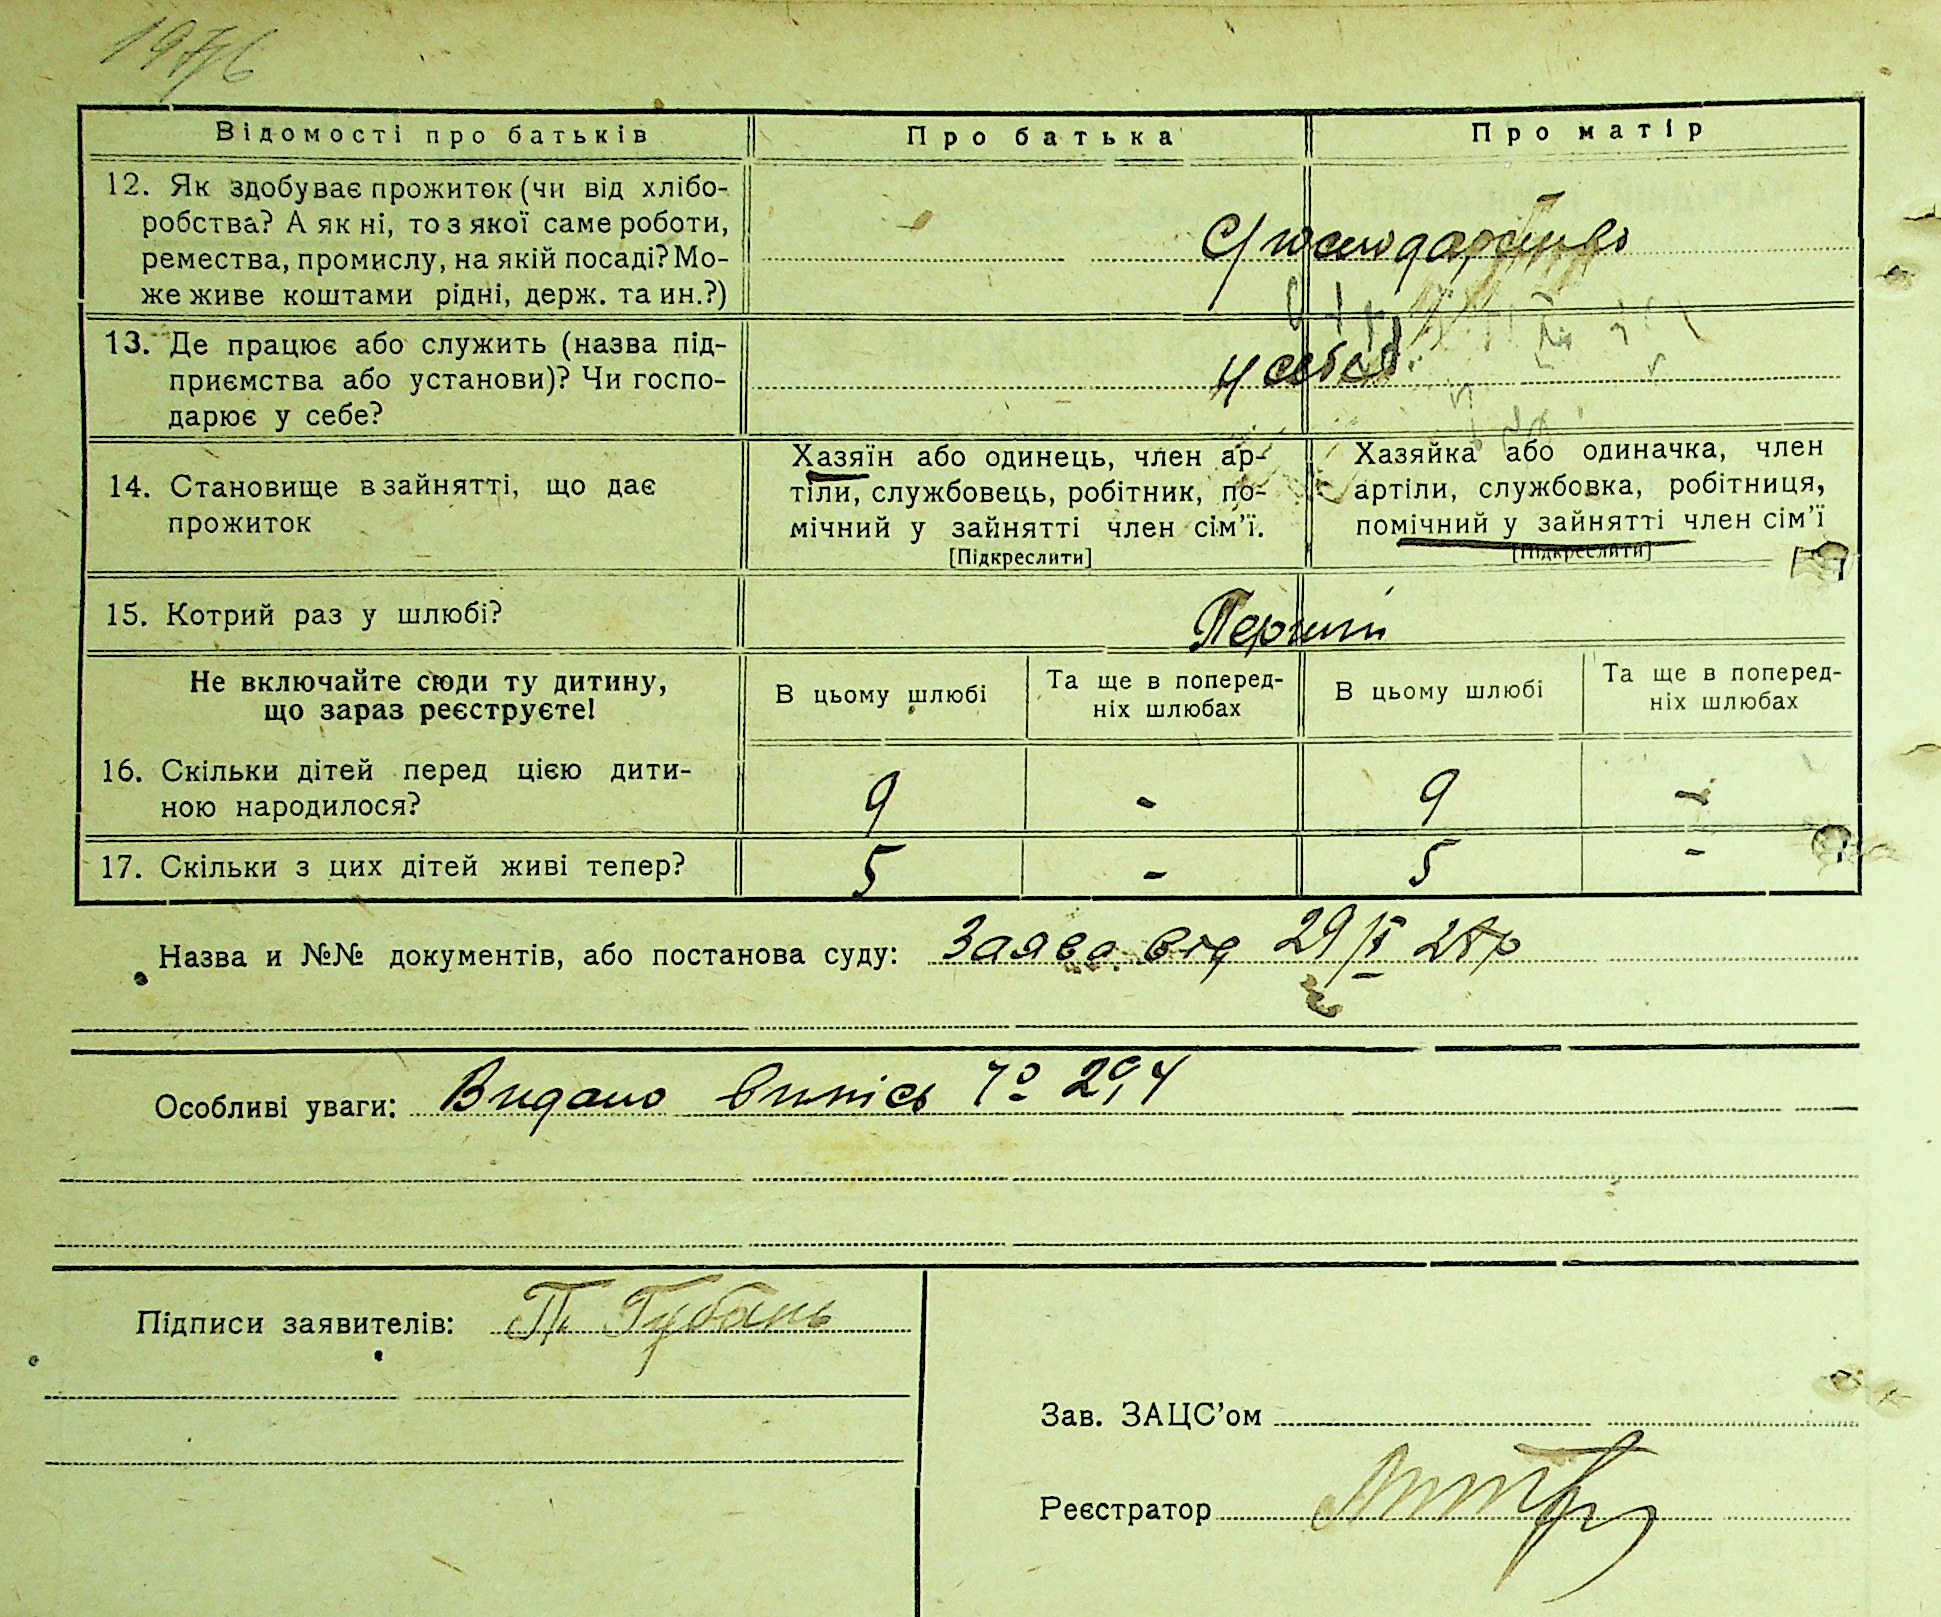 Відомості про батьків
Про батька
Про матір
12. Як здобуває прожиток (чи від хлібо-
робства? А як ні, то з якої саме роботи,
ремества, промислу, на якій посаді? Мо-
же живе коштами рідні, держ. та ин.?)
С/господарство
13. Де працює або служить (назва під-
приємства або установи)? Чи госпо-
дарює у себе?
у себе
14. Становище в зайнятті, що дає
прожиток
Хазяїн або одинець, член ар-
тіли, службовець, робітник, по-
мічний у зайнятті член сім'ї.
[Підкреслити]
Хазяйка або одиначка, член
артіли, службовка, робітниця,
помічний у зайнятті член сім'ї
[Підкреслити]
15. Котрий раз у шлюбі?
Перший
Не включайте сюди ту дитину,
що зараз реєструєте!
В цьому шлюбі
Та ще в поперед-
ніх шлюбах
В цьому шлюбі
Та ще в поперед-
ніх шлюбах
16. Скільки дітей перед цією дити-
ною народилося?
9 - 9 -
17. Скільки з цих дітей живі тепер?
5 - 5 -
Назва и №№ документів, або постанова суду: Заява від 29/
Особливі уваги: Видано випись №
Підписи заявителів: П. Губань
Зав. ЗАЦС'ом
Реєстратор